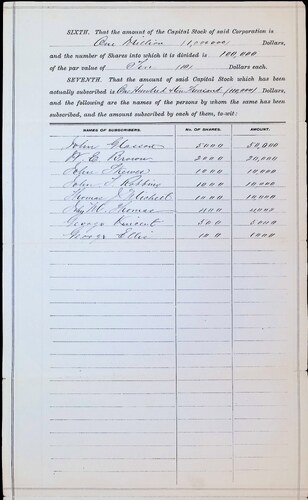 SIXTH. That the amount of the Capital Stock of said Corporation is
One Million (1,000,000) Dollars,
and the number of Shares into which it is divided is 100,000
of the par value of Ten (10) Dollars each.
SEVENTH. That the amount of said Capital Stock which has been
actually subscribed is One Hundred & Ten Thousand (110,000) Dollars,
and the following are the names of the persons by whom the same has been
subscribed, and the amount subscribed by each of them, to-wit:
NAMES OF SUBSCRIBERS. NO. OF SHARES. AMOUNT.
John Glasson 5000 50,000
W. C. Brown 2000 20,000
John Thomas 1000 10,000
John T Robbins 1000 10,000
Thomas J Michell 1000 10,000
M. Thomas 400 4,000
George Vincent 500 5000
George Ellis 100 1000